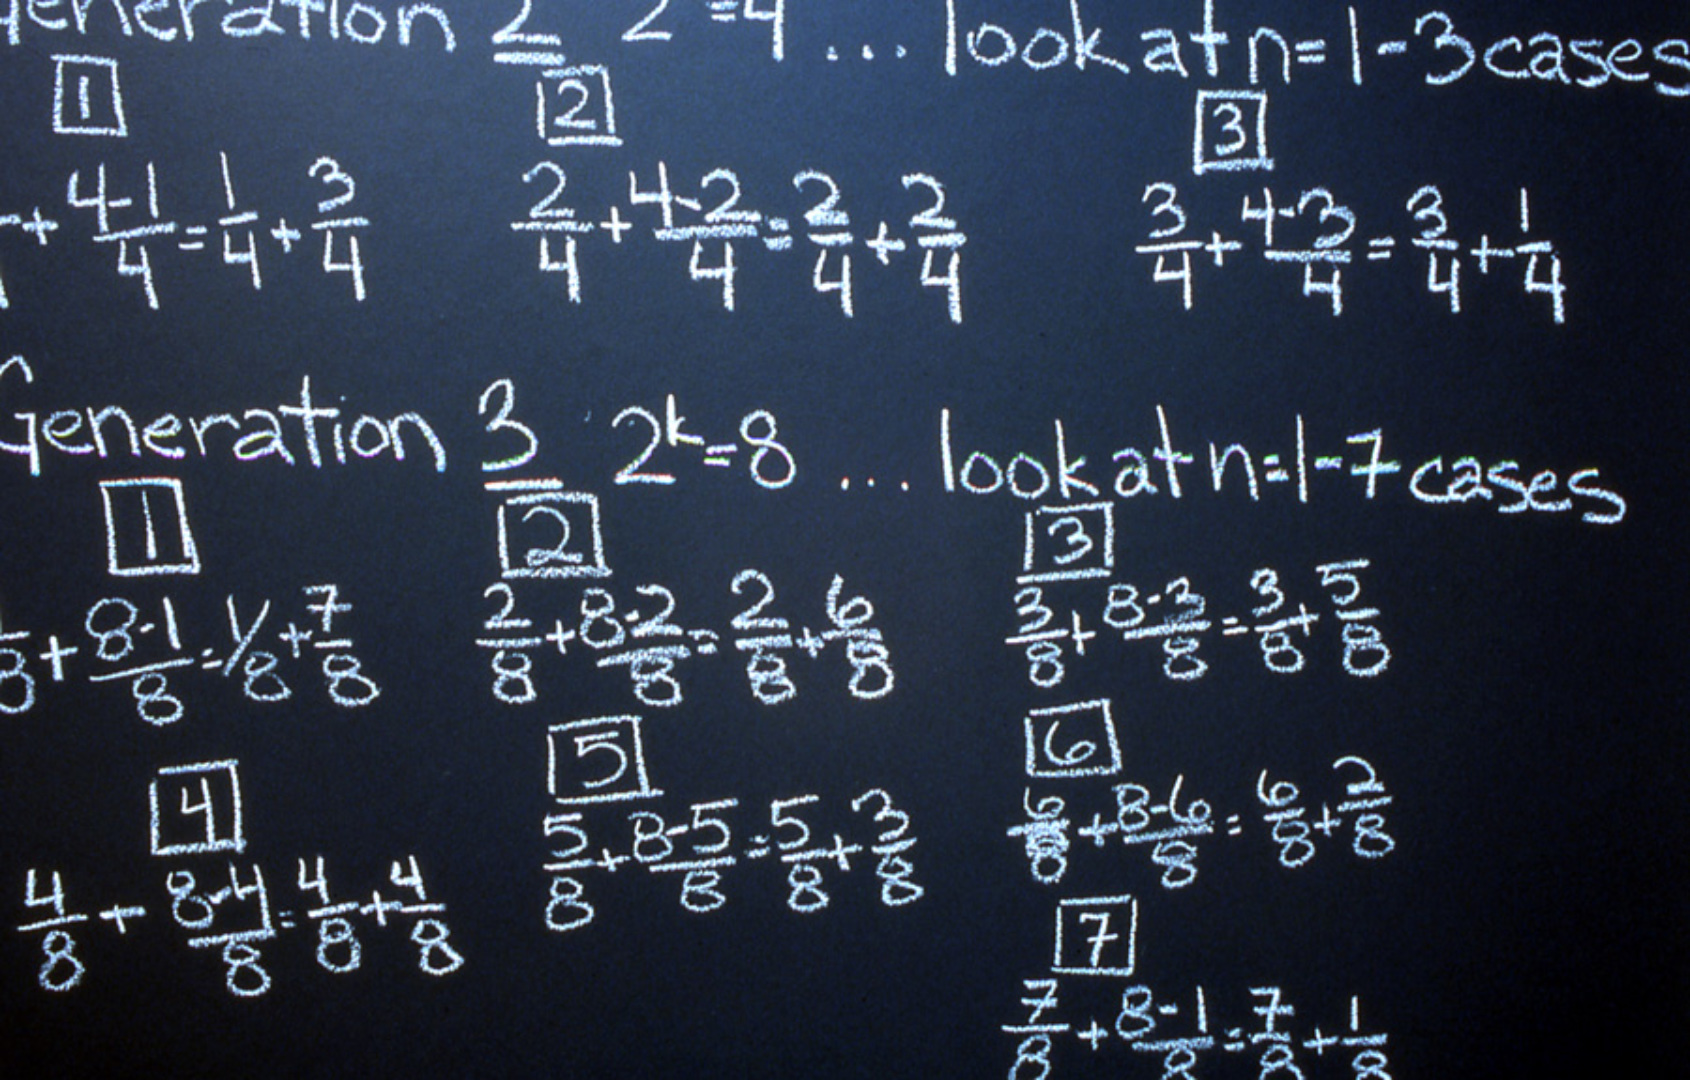 Generation 2 2 =4 ... look at n=1-3 cases
1 2 3
+ 4-1/4 = 1/4 + 3/4 2/4 + 4-2/4 = 2/4 + 2/4 3/4 + 4-3/4 = 3/4 + 1/4
Generation 3 2^k=8 ... look at n=1-7 cases
1 2 3
1/8 + 8-1/8 = 1/8 + 7/8 2/8 + 8-2/8 = 2/8 + 6/8 3/8 + 8-3/8 = 3/8 + 5/8
4 5 6
4/8 + 8-4/8 = 4/8 + 4/8 5/8 + 8-5/8 = 5/8 + 3/8 6/8 + 8-6/8 = 6/8 + 2/8
7
7/8 + 8-1/8 = 7/8 + 1/8